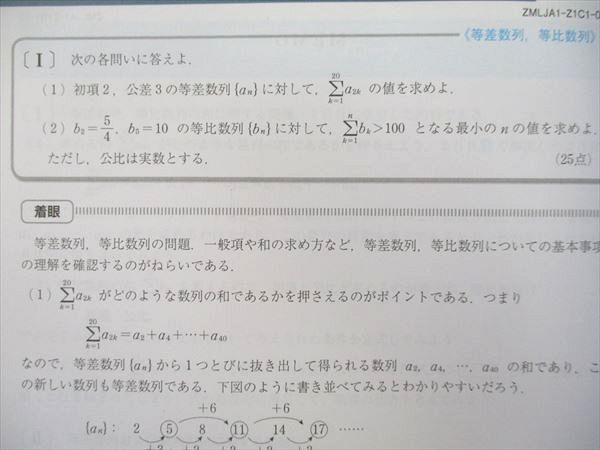 ZMLJA1-Z1C1-0
《等差数列，等比数列》
〔 I 〕 次の各問いに答えよ．
(1) 初項 2，公差 3 の等差数列 {aₙ} に対して，∑_{k=1}^{20} a_{2k} の値を求めよ．
(2) b₂=5/4，b₅=10 の等比数列 {bₙ} に対して，∑_{k=1}^{n} b_k>100 となる最小の n の値を求めよ．
ただし，公比は実数とする． (25点)
着眼
等差数列，等比数列の問題．一般項や和の求め方など，等差数列，等比数列についての基本事項
の理解を確認するのがねらいである．
(1) ∑_{k=1}^{20} a_{2k} がどのような数列の和であるかを押さえるのがポイントである．つまり
∑_{k=1}^{20} a_{2k}=a₂+a₄+⋯+a₄₀
なので，等差数列 {aₙ} から 1 つとびに抜き出して得られる数列 a₂, a₄, ⋯, a₄₀ の和であり，こ
の新しい数列も等差数列である．下図のように書き並べてみるとわかりやすいだろう．
+6 +6
{aₙ}： 2 ⑤ 8 ⑪ 14 ⑰ ……